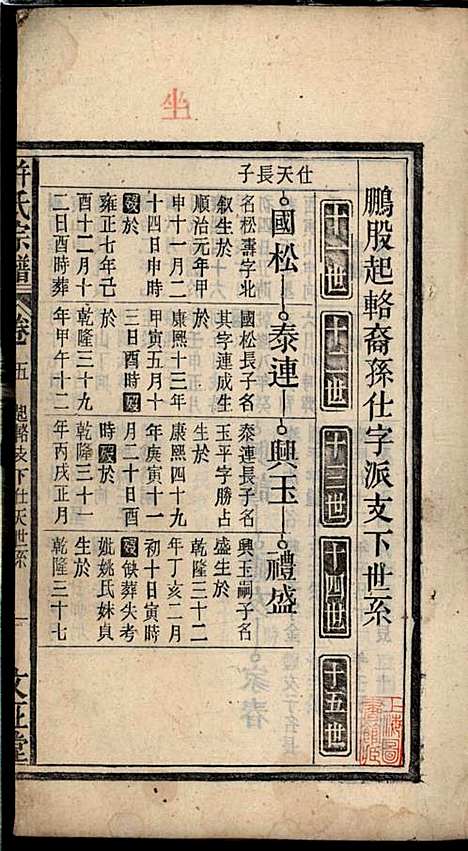 坐
鵬股起輅裔孫仕字派支下世系
十一世
十二世
十三世
十四世
十五世
仕天長子
國松
泰連
興玉
禮盛
名松壽字北
叙生於
順治元年甲
申十一月二
十四日申時
歿於
雍正七年己
酉十二月十
二日酉時葬
國松長子名
其字連成生
於
康熙十三年
甲寅五月十
三日酉時歿
於
乾隆三十九
年甲午十二
泰連長子名
玉平字勝占
生於
康熙四十九
年庚寅十一
月二十日酉
時歿於
乾隆三十一
年丙戌正月
興玉嗣子名
盛生於
乾隆三十二
年丁亥二月
初十日寅時
歿缺葬失考
妣姚氏妹貞
生於
乾隆三十七
許氏宗譜
卷五
起輅支下仕天世系
一
文正堂
上海圖書館藏